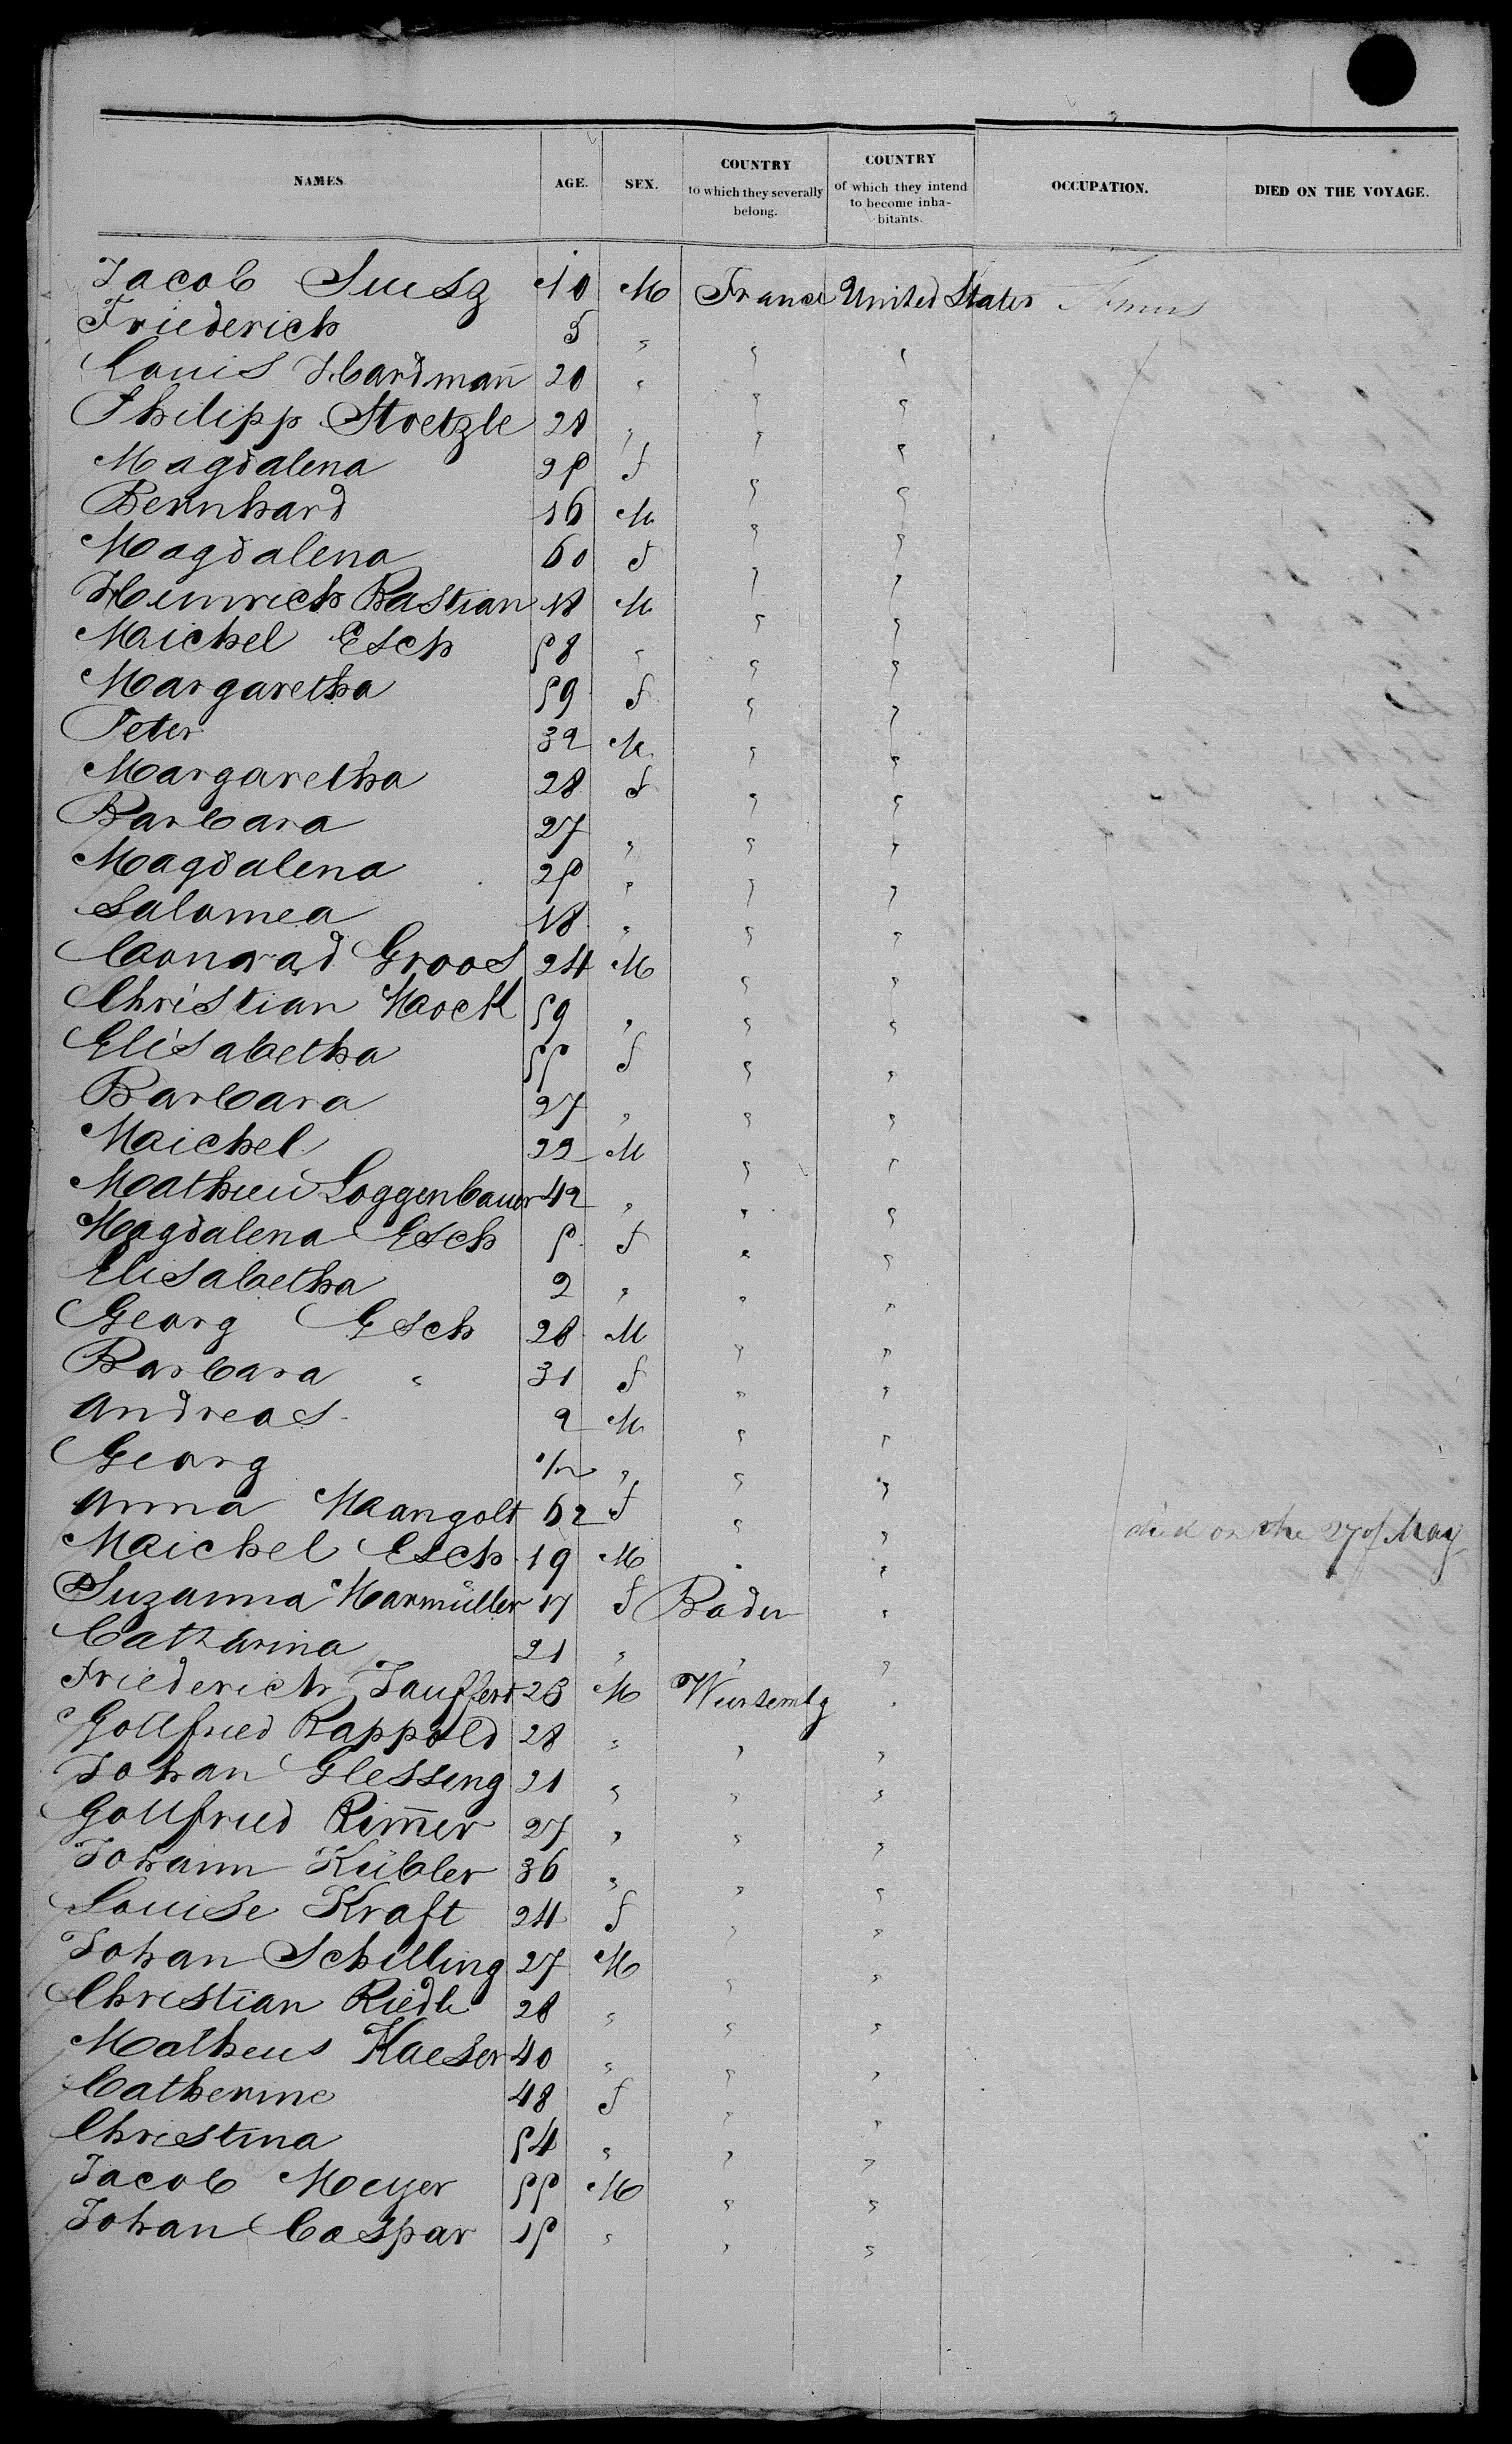 NAMES AGE. SEX. COUNTRY to which they severally belong. COUNTRY of which they intend to become inhabitants. OCCUPATION. DIED ON THE VOYAGE.
Jacob 10 M France United States
Friederich 5 "
Louis Hardman̄ 20 " " "
Philipp Stoetzle 28 " " "
Magdalena 25 f " "
Bernhard 16 M " "
Magdalena 60 f " "
Heinrich Bastian 18 M " "
Maichel Esch 58 " " "
Margaretha 59 f " "
Peter 32 M " "
Margaretha 28 f " "
Barbara 27 " " "
Magdalena 25 " " "
Salomea 18 " " "
Conrad Groos 24 M " "
Christian Hock 59 " " "
Elisabetha 55 f " "
Barbara 27 " " "
Maichel 22 M " "
Mathieu Loggenbauer 42 " " "
Magdalena Esch 5 f " "
Elisabetha 2 " " "
Georg Esch 28 M " "
Barbara " 31 f " "
Andreas 2 M " "
Georg " " "
Anna Mangolt 62 f " " died on the 27 of May
Maichel Esch 19 M " "
Suzanna Marmüller 17 f Baden "
Catharina 21 " " "
Friederich Tauffert 23 M Wurtembg "
Gottfried Rappold 28 " " "
Johan Glessing 21 " " "
Gottfried Rim̄er 27 " " "
Johann Kübler 36 " " "
Louise Kraft 24 f " "
Johan Schilling 27 M " "
Christian Riedle 28 " " "
Matheus Kaeser 40 " " "
Catherine 48 f " "
Christina 54 " " "
Jacob Meyer 55 M " "
Johan Caspar 15 " " "